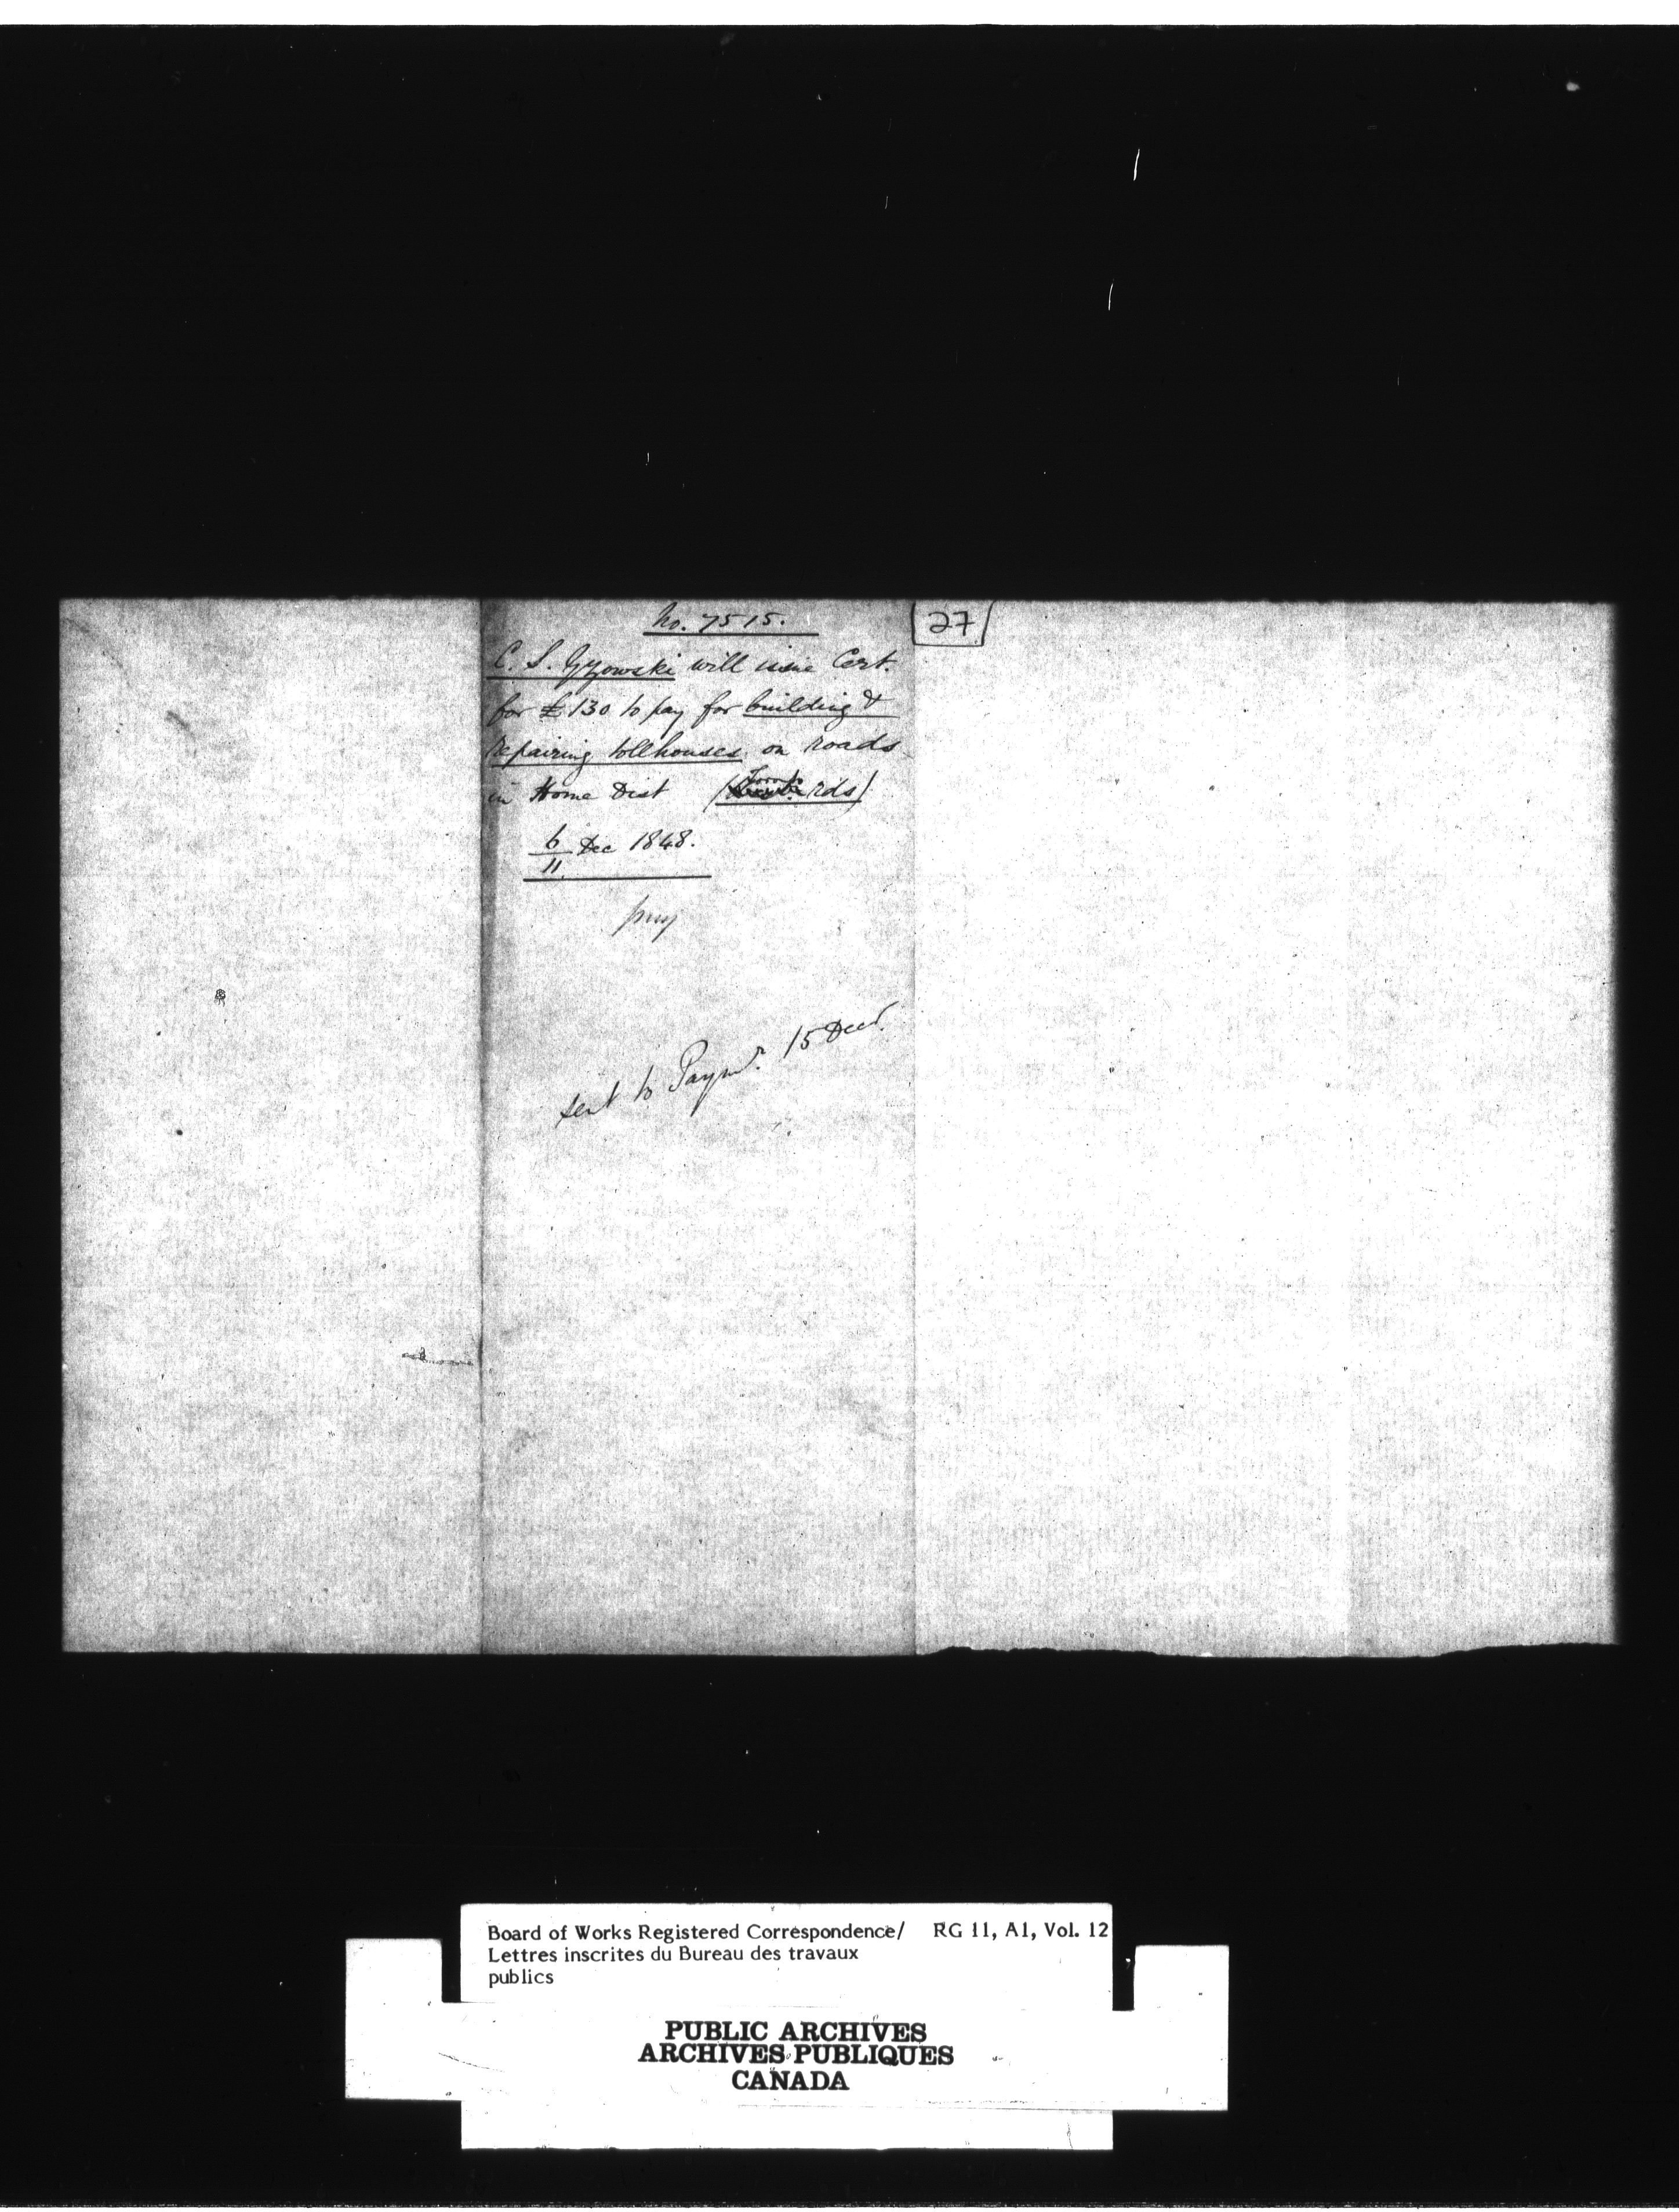 No. 7515.
27
C. S. Gzowski will issue Cert.
for £130 to pay for building &
repairing tollhouses on roads
in Home Dist (Toronto rds)
6/11 Dec 1848.
sent to Paymr. 15 Decr.
Board of Works Registered Correspondence/ RG 11, A1, Vol. 12
Lettres inscrites du Bureau des travaux
publics
PUBLIC ARCHIVES
ARCHIVES PUBLIQUES
CANADA